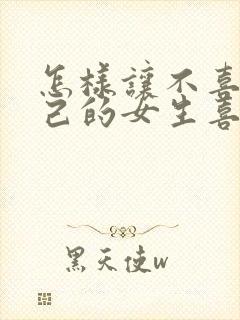 怎樣讓不喜
己的女生喜
黑天使w